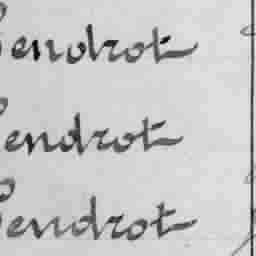 endrot
endrot
endrot